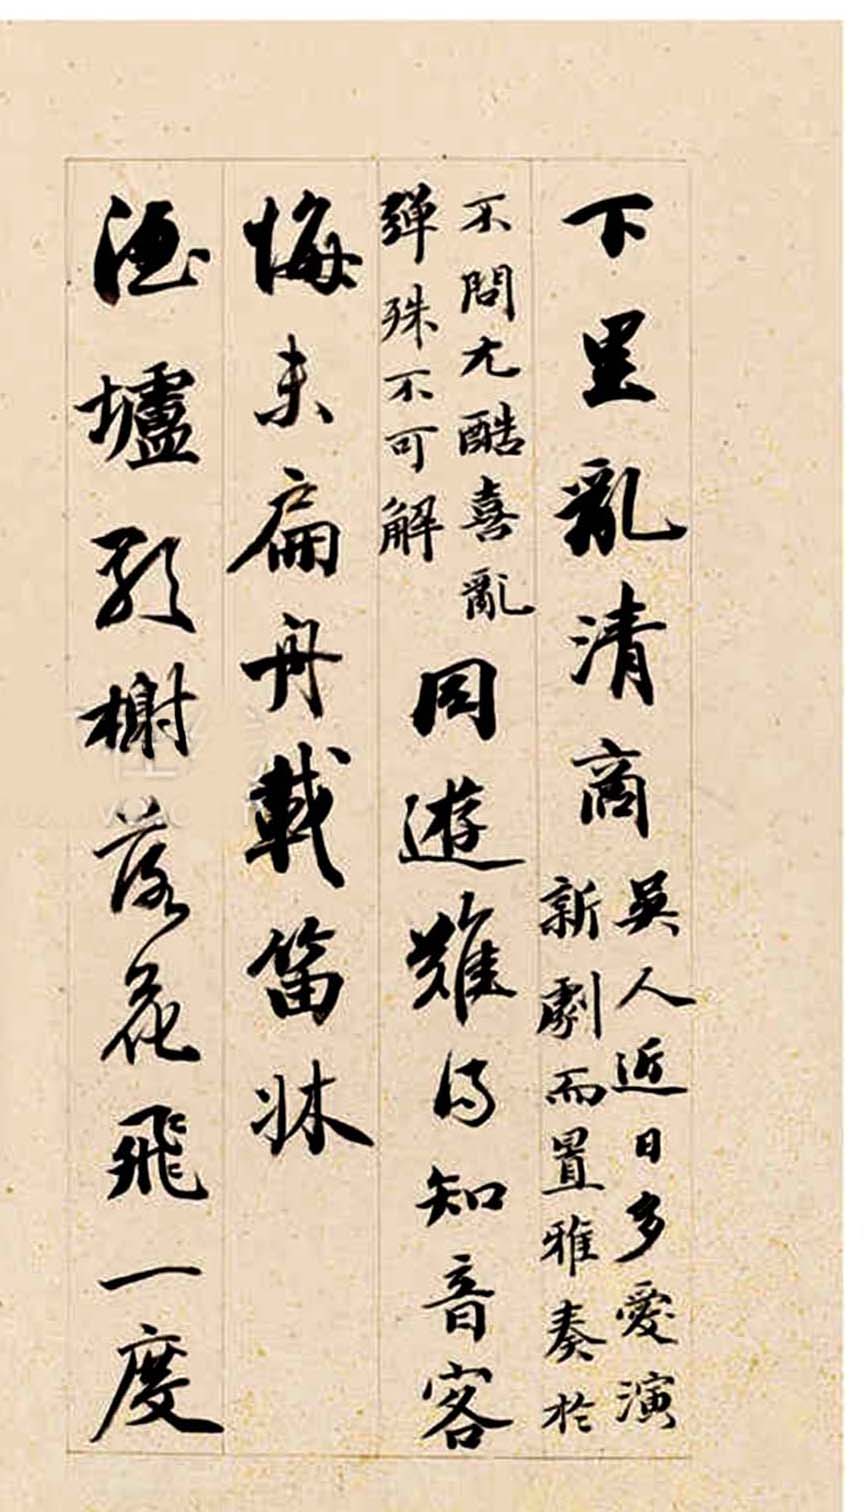 下里亂清商
吳人近日多愛演
新劇而置雅奏於
不問尤酷喜亂
彈殊不可解
同遊難得知音客
悔未扁舟載笛牀
酒壚歌榭落花飛一度